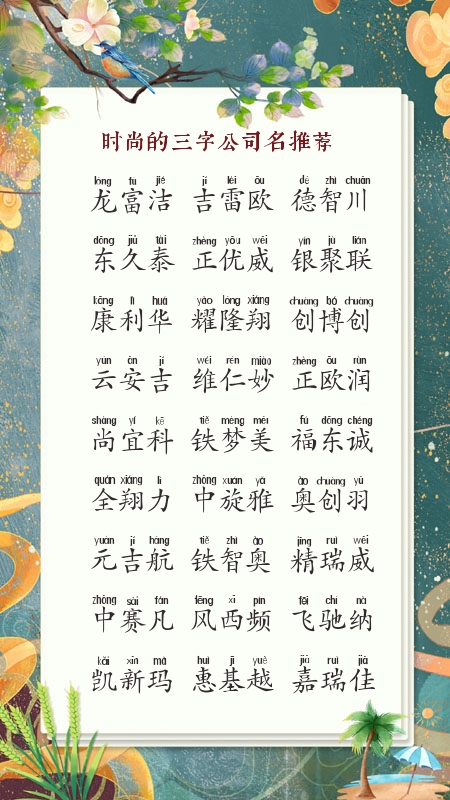 时尚的三字公司名推荐
lóng fù jié jí léi ōu dé zhì chuān
龙富洁 吉雷欧 德智川
dōng jiǔ tài zhèng yōu wēi yín jù lián
东久泰 正优威 银聚联
kāng lì huá yào lóng xiáng chuàng bó chuàng
康利华 耀隆翔 创博创
yún ān jí wéi rén miào zhèng ōu rùn
云安吉 维仁妙 正欧润
shàng yí kē tiě mèng měi fú dōng chéng
尚宜科 铁梦美 福东诚
quán xiáng lì zhōng xuán yǎ ào chuàng yǔ
全翔力 中旋雅 奥创羽
yuán jí háng tiě zhì ào jīng ruì wēi
元吉航 铁智奥 精瑞威
zhōng sài fán fēng xī pín fēi chí nà
中赛凡 风西频 飞驰纳
kǎi xīn mǎ huì jī yuè jiā ruì jiā
凯新玛 惠基越 嘉瑞佳